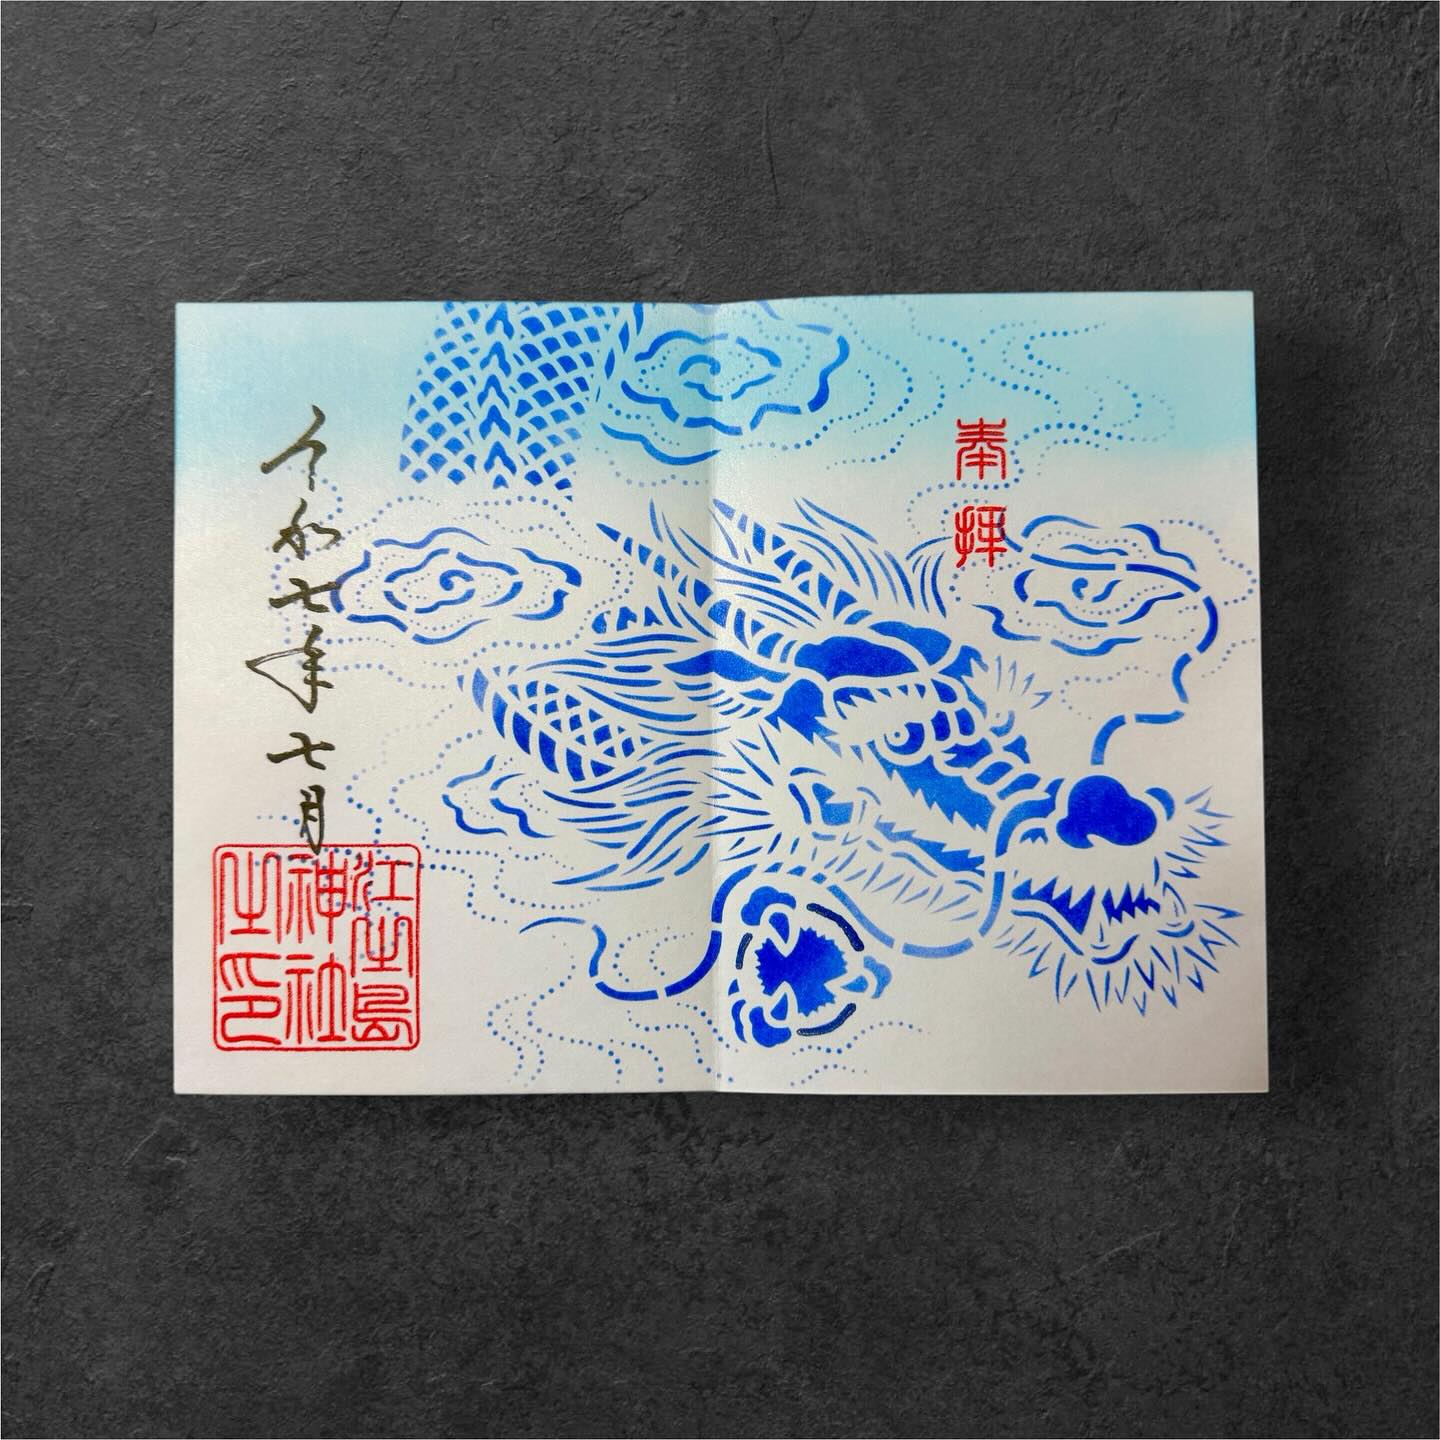 奉拝
令和七年七月
江之島
神社
之印